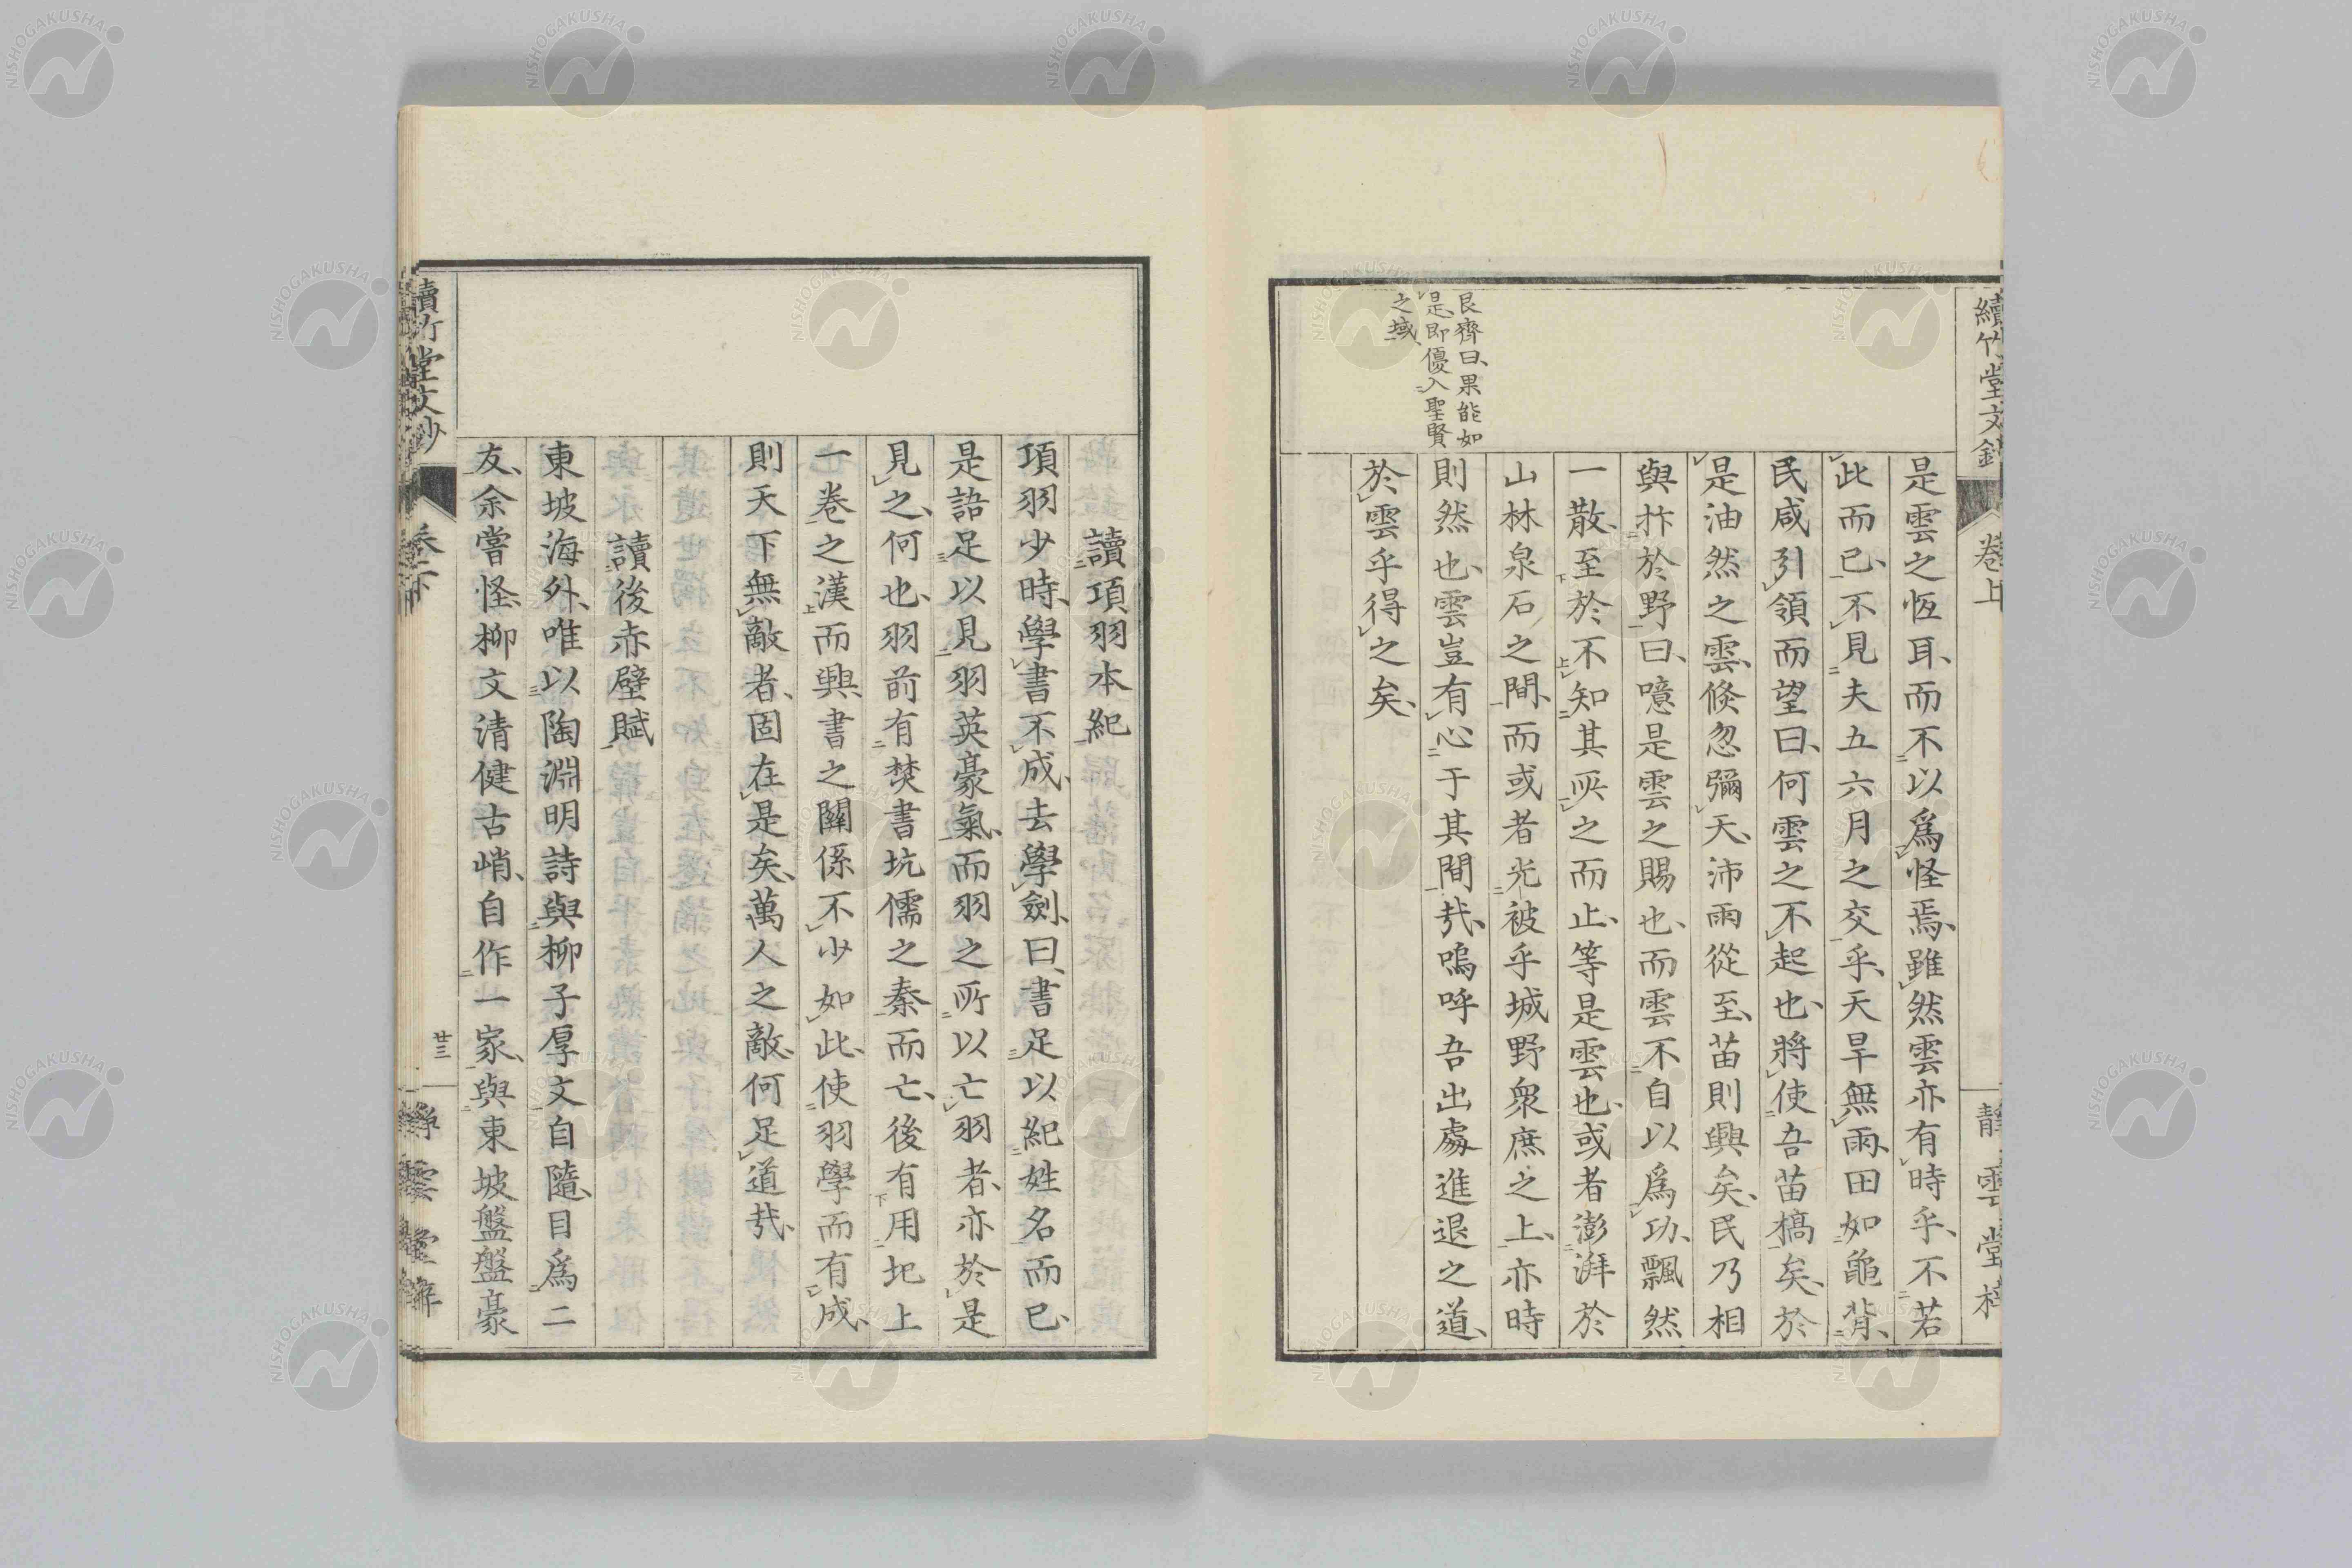 續竹堂文鈔
卷上
靜雲堂梓
是雲之恆耳、而不以爲怪焉、雖然雲亦有時乎、不若
此而已、不見夫五六月之交乎、天旱無雨、田如龜背、
民咸引領而望曰、何雲之不起也、將使吾苗槁矣、於
是油然之雲、倏忽彌天、沛雨從至、苗則興矣、民乃相
與抃於野曰、噫是雲之賜也、而雲不自以爲功、飄然
一散、至於不知其所之而止、等是雲也、或者澎湃於
山林泉石之間、而或者光被乎城野衆庶之上、亦時
則然也、雲豈有心于其間哉、嗚呼吾出處進退之道、
於雲乎得之矣、
艮齊曰、果能如
是、即優入聖賢
之域、
讀項羽本紀
項羽少時、學書不成、去學劍、曰、書足以紀姓名而已、
是語足以見羽英豪氣、而羽之所以亡羽者、亦於是
見之、何也、羽前有焚書坑儒之秦而亡、後有用圯上
一卷之漢而興、書之關係不少如此、使羽學而有成、
則天下無敵者、固在是矣、萬人之敵、何足道哉、
讀後赤壁賦
東坡海外、唯以陶淵明詩與柳子厚文自隨、目爲二
友、余嘗怪、柳文清健古峭、自作一家、與東坡盤盤豪
續竹堂文鈔
廿三
靜雲堂梓